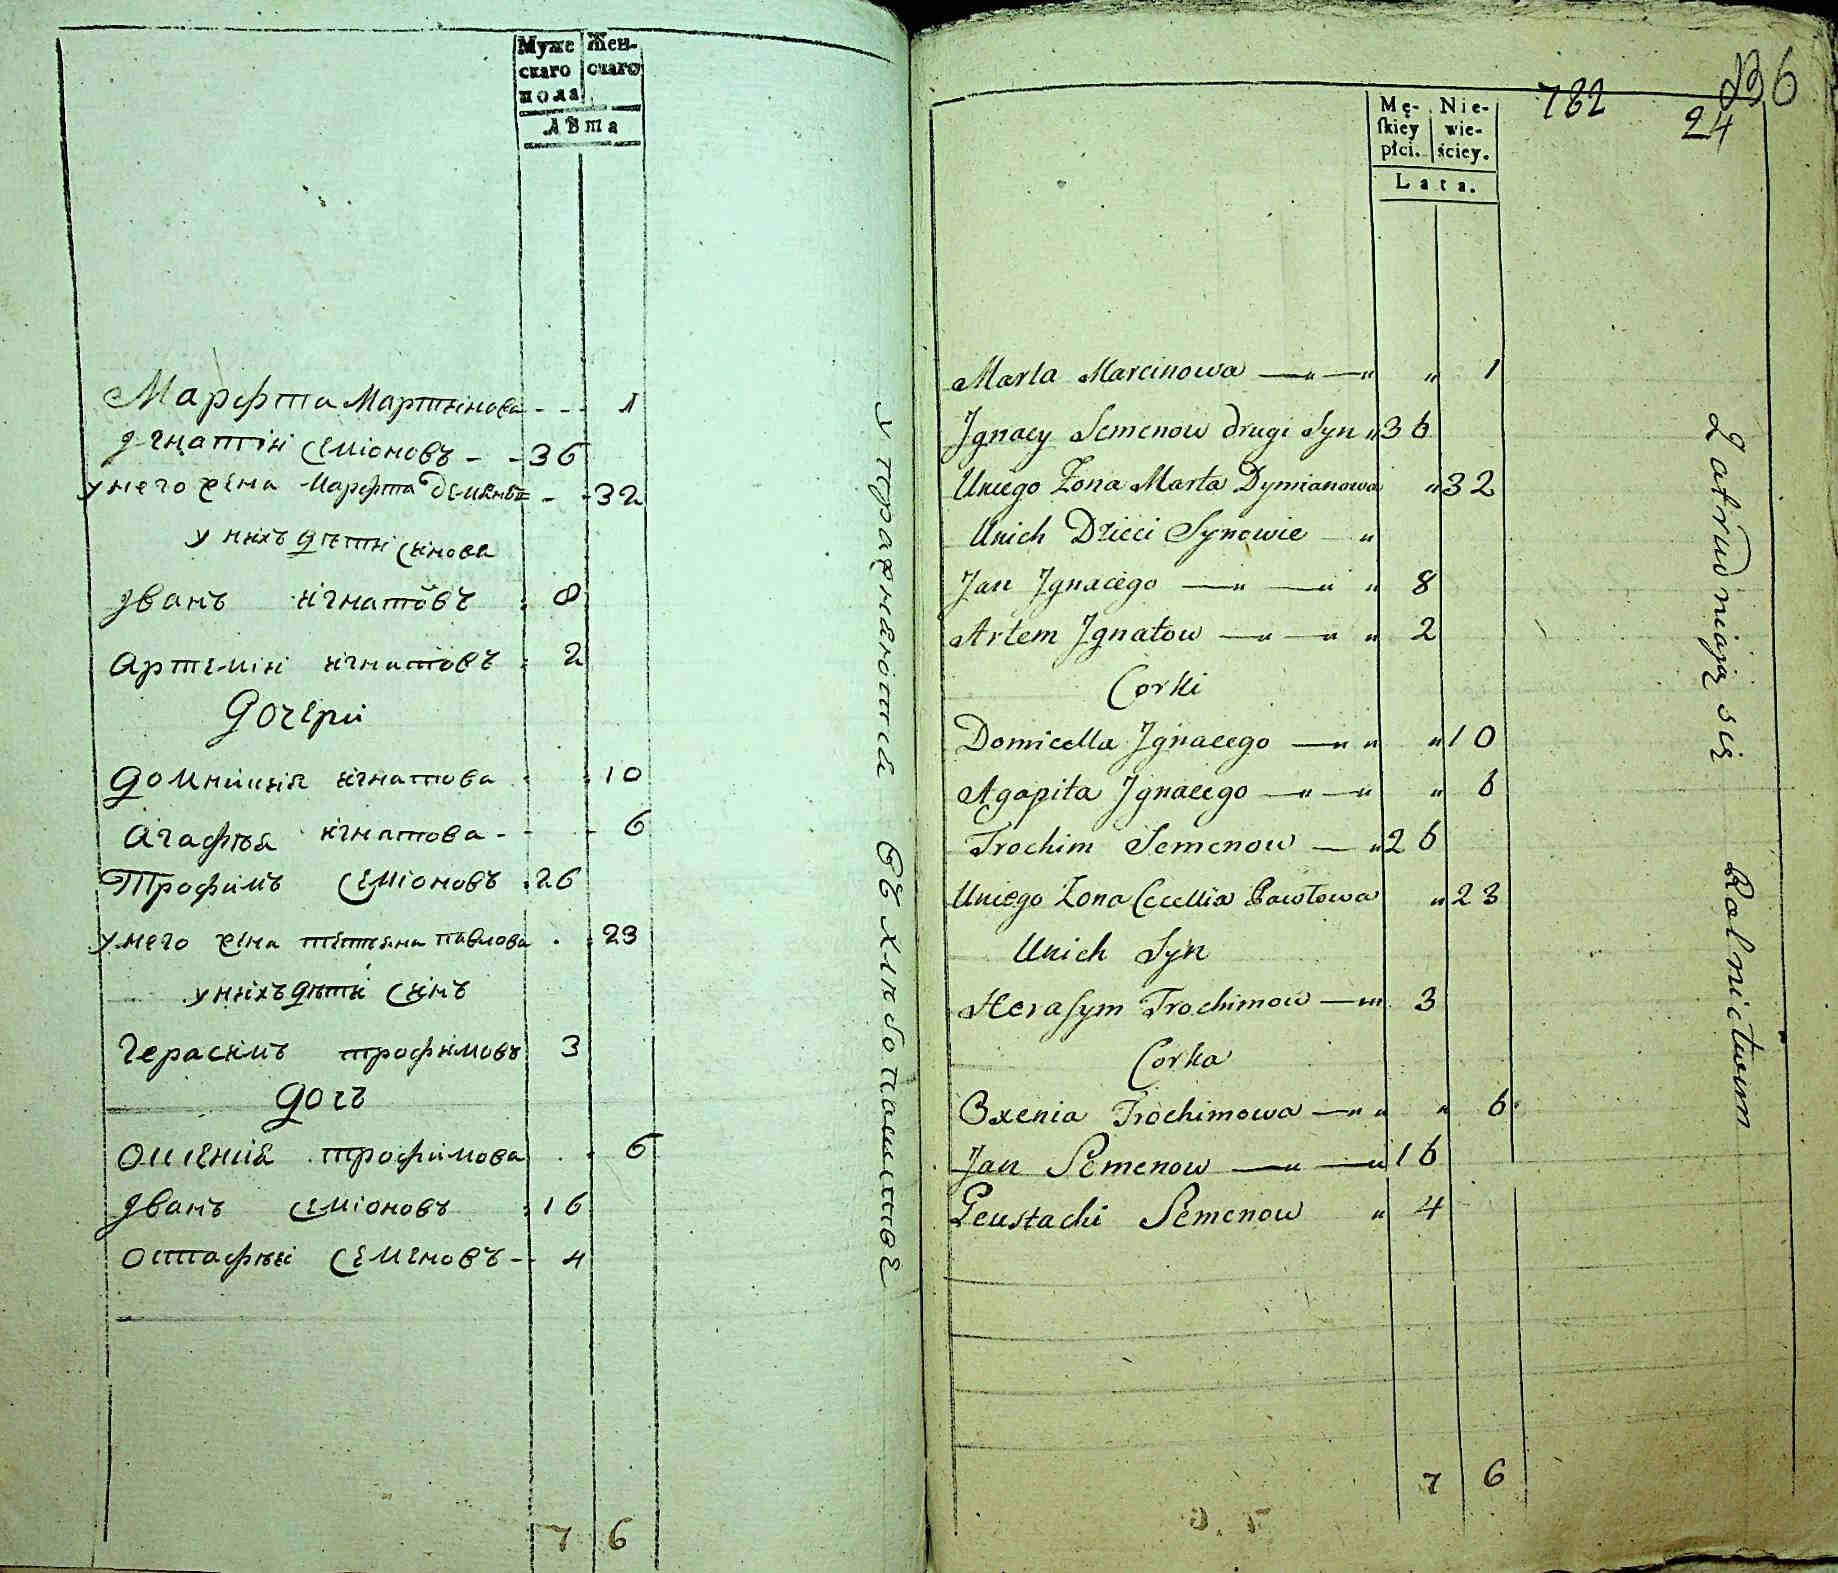 Муже Жен-
скаго скаго
пола
Лѣта
Марфта Мартинова - - - 1
Игнатiй Семiоновъ - - 36
у него жена Марфта - - 32
у нихъ дѣти синова
Iванъ игнатовъ 8
Артемiй игнатовъ 2
Дочери
Домникiя игнатова 10
Агафѣя игнатова - - - 6
Трофимъ Семiоновъ 26
у него жена тетѣяна павлова 23
у нихъ дѣти синъ
Герасимъ трофимовъ 3
Дочъ
трофимова 6
Iванъ Семiоновъ 16
Остафѣй Семеновъ - 4
7 6
упражнаются въ хлѣбопашествѣ
782
236
24
Mę- Nie-
ſkiey wie-
płci. ściey.
Lata.
Marta Marcinowa — " — " " 1
Jgnacy Semenow drugi Syn " 36
Uniego Żona Marta Dymianowa " 32
Unich Dzieci Synowie "
Jan Jgnacego — " — " " 8
Artem Jgnatow — " — " " 2
Corki
Domicella Jgnacego — " " " 10
Agapita Jgnacego — " — " " 6
Trochim Semenow — " 26
Uniego Żona Cecellia Pawłowa " 23
Unich Syn
Herasym Trochimow — " " 3
Corka
Oxenia Trochimowa — " " " 6
Jan Semenow — " — " 16
Jeustachi Semenow " 4
7 6
Zatrudniaią się Rolnictwem